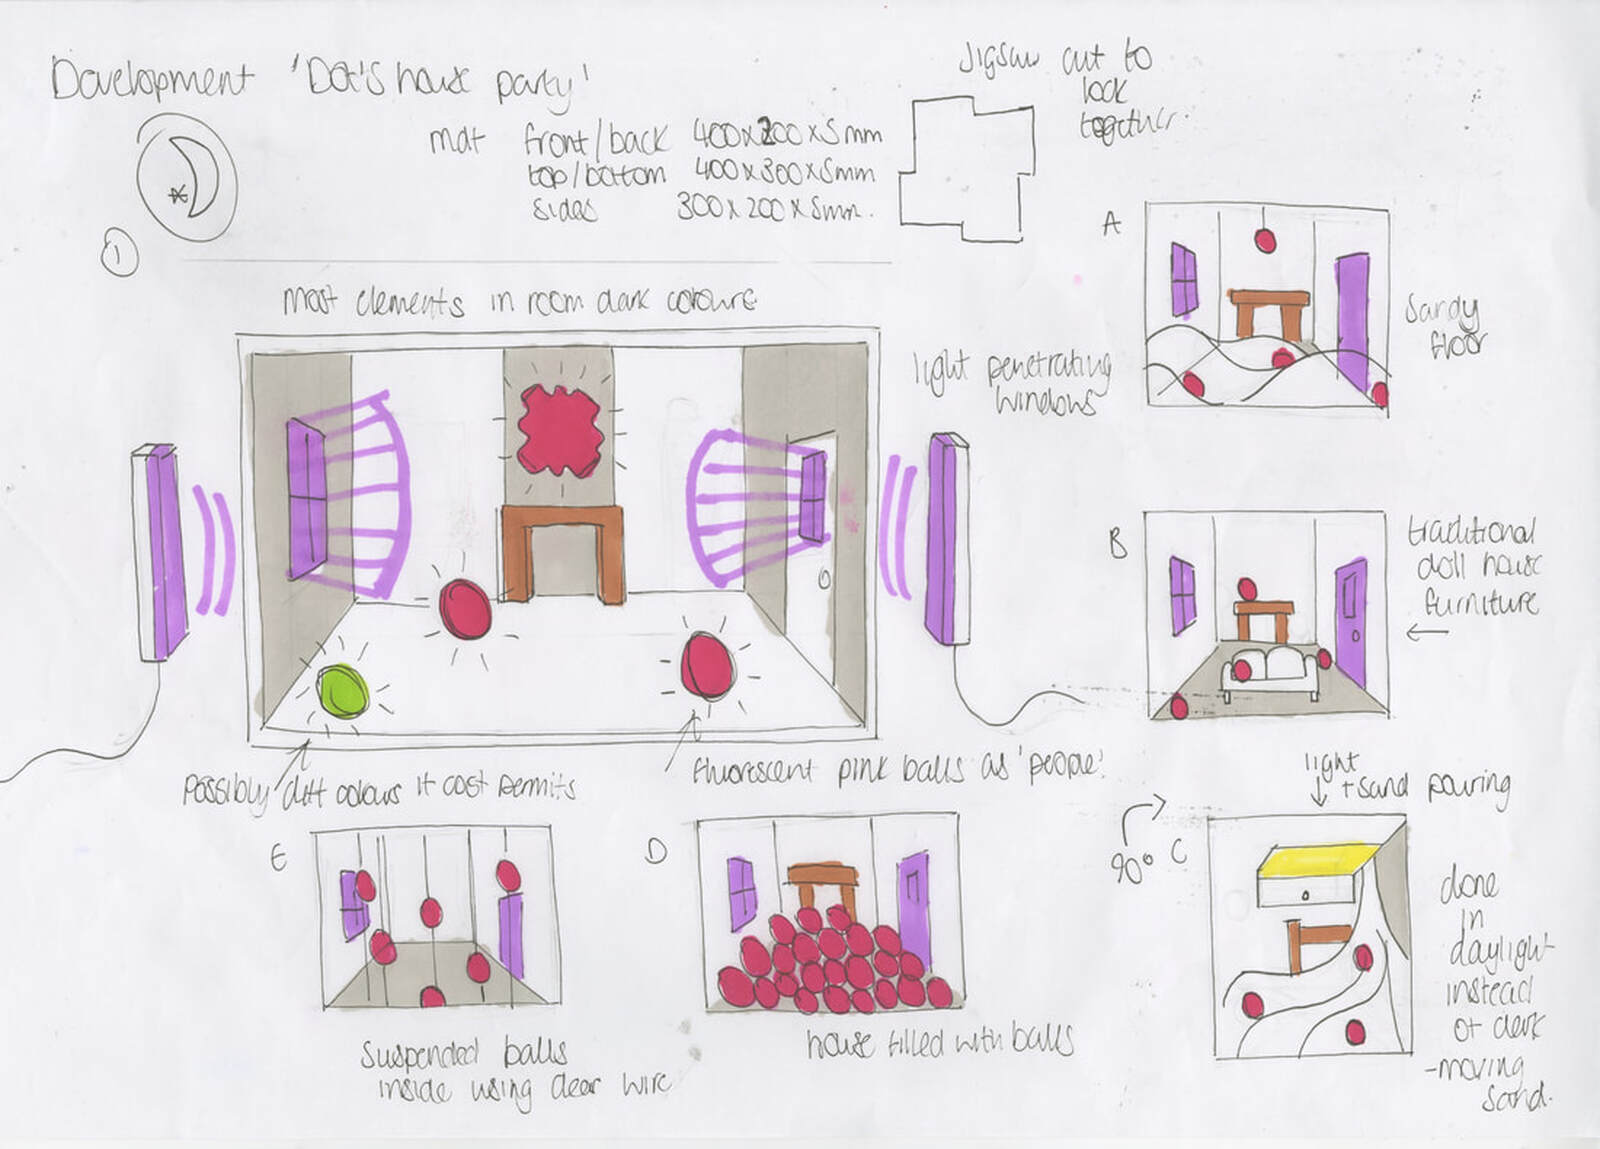 Development 'Dot's house party'
mdf front/back 400x200x5mm
top/bottom 400x300x5mm
sides 300x200x5mm.
Jigsaw cut to
lock
together.
1
most elements in room dark colours
light penetrating
windows
possibly diff colours if cost permits
fluorescent pink balls as 'people'
A
sandy
floor
B
traditional
doll house
furniture
light
+ sand pouring
90° C
done
in
daylight
instead
of dark
-moving
sand.
D
house filled with balls
E
suspended balls
inside using clear wire